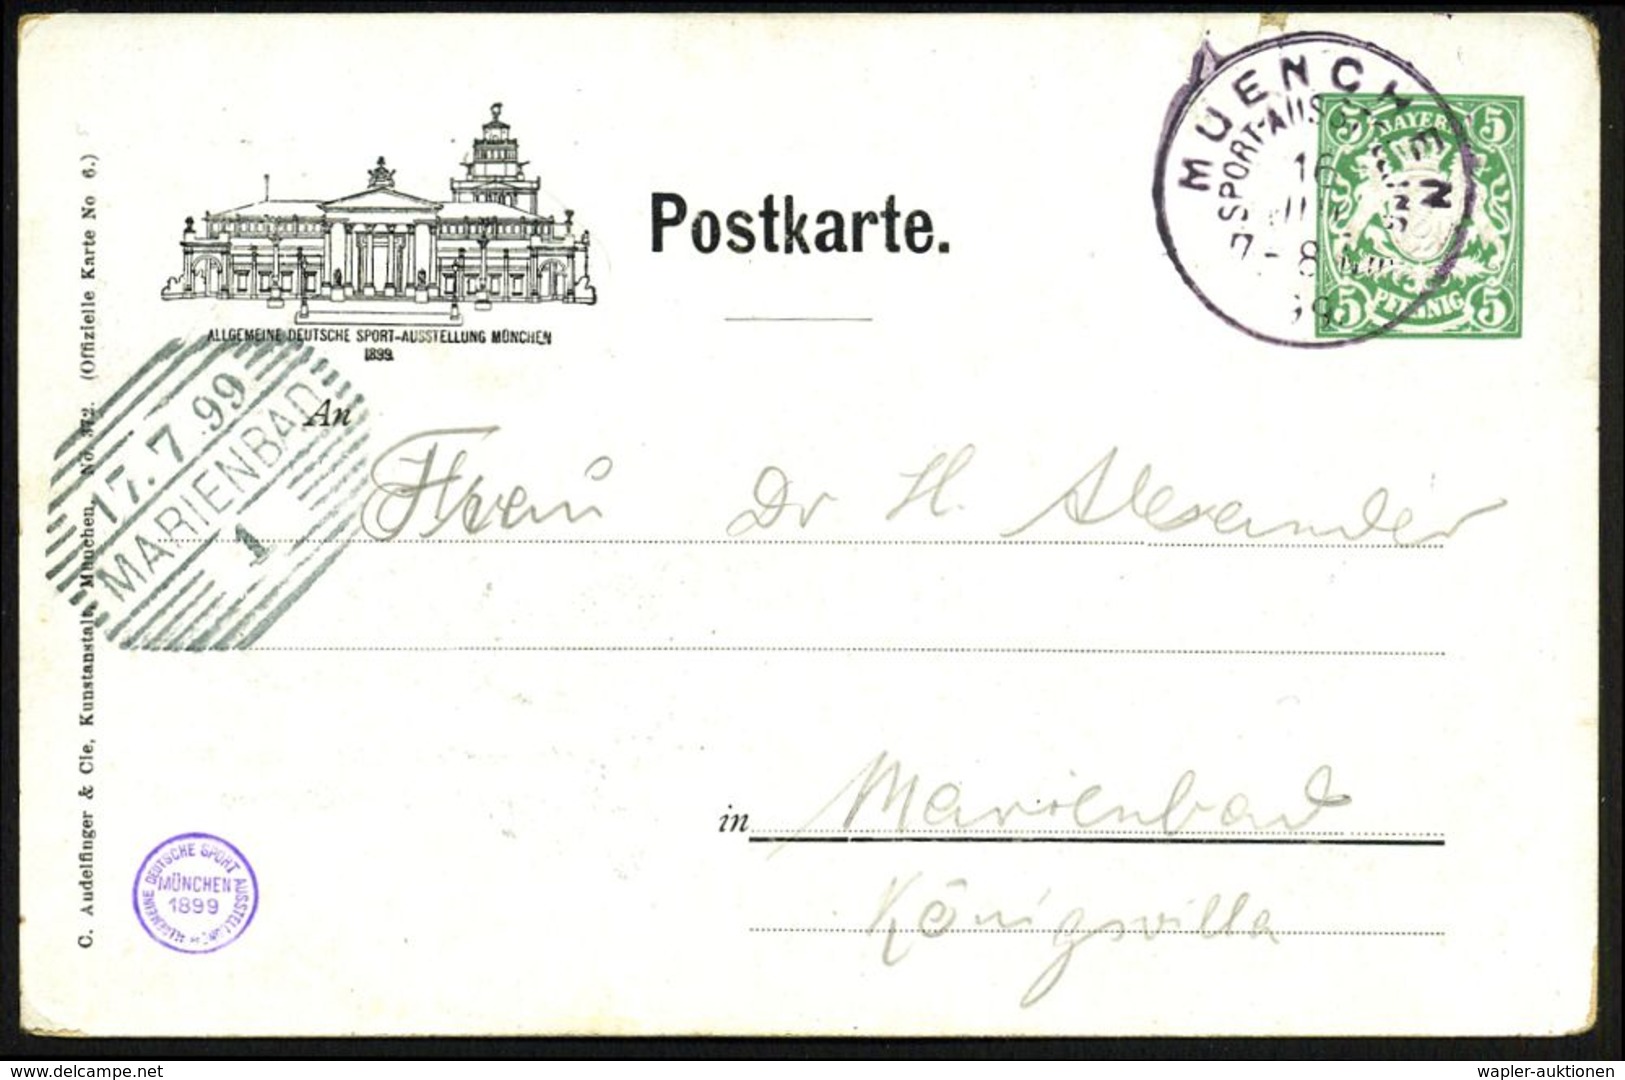 Postkarte.
MUENCHEN
SPORT-AUSST
16
7-8
BAYERN
5 5
5 PFENNIG 5
ALLGEMEINE DEUTSCHE SPORT-AUSSTELLUNG MÜNCHEN
1899.
17.7.99
MARIENBAD
1
An
Frau Dr H. Alexander
in Marienbad
Königsvilla
C. Audelfinger & Cie, Kunstanstalt, München, No. 372. (Offizielle Karte No 6.)
ALLGEMEINE DEUTSCHE SPORT AUSSTELLUNG
MÜNCHEN
1899
delcampe.net
wapler-auktionen